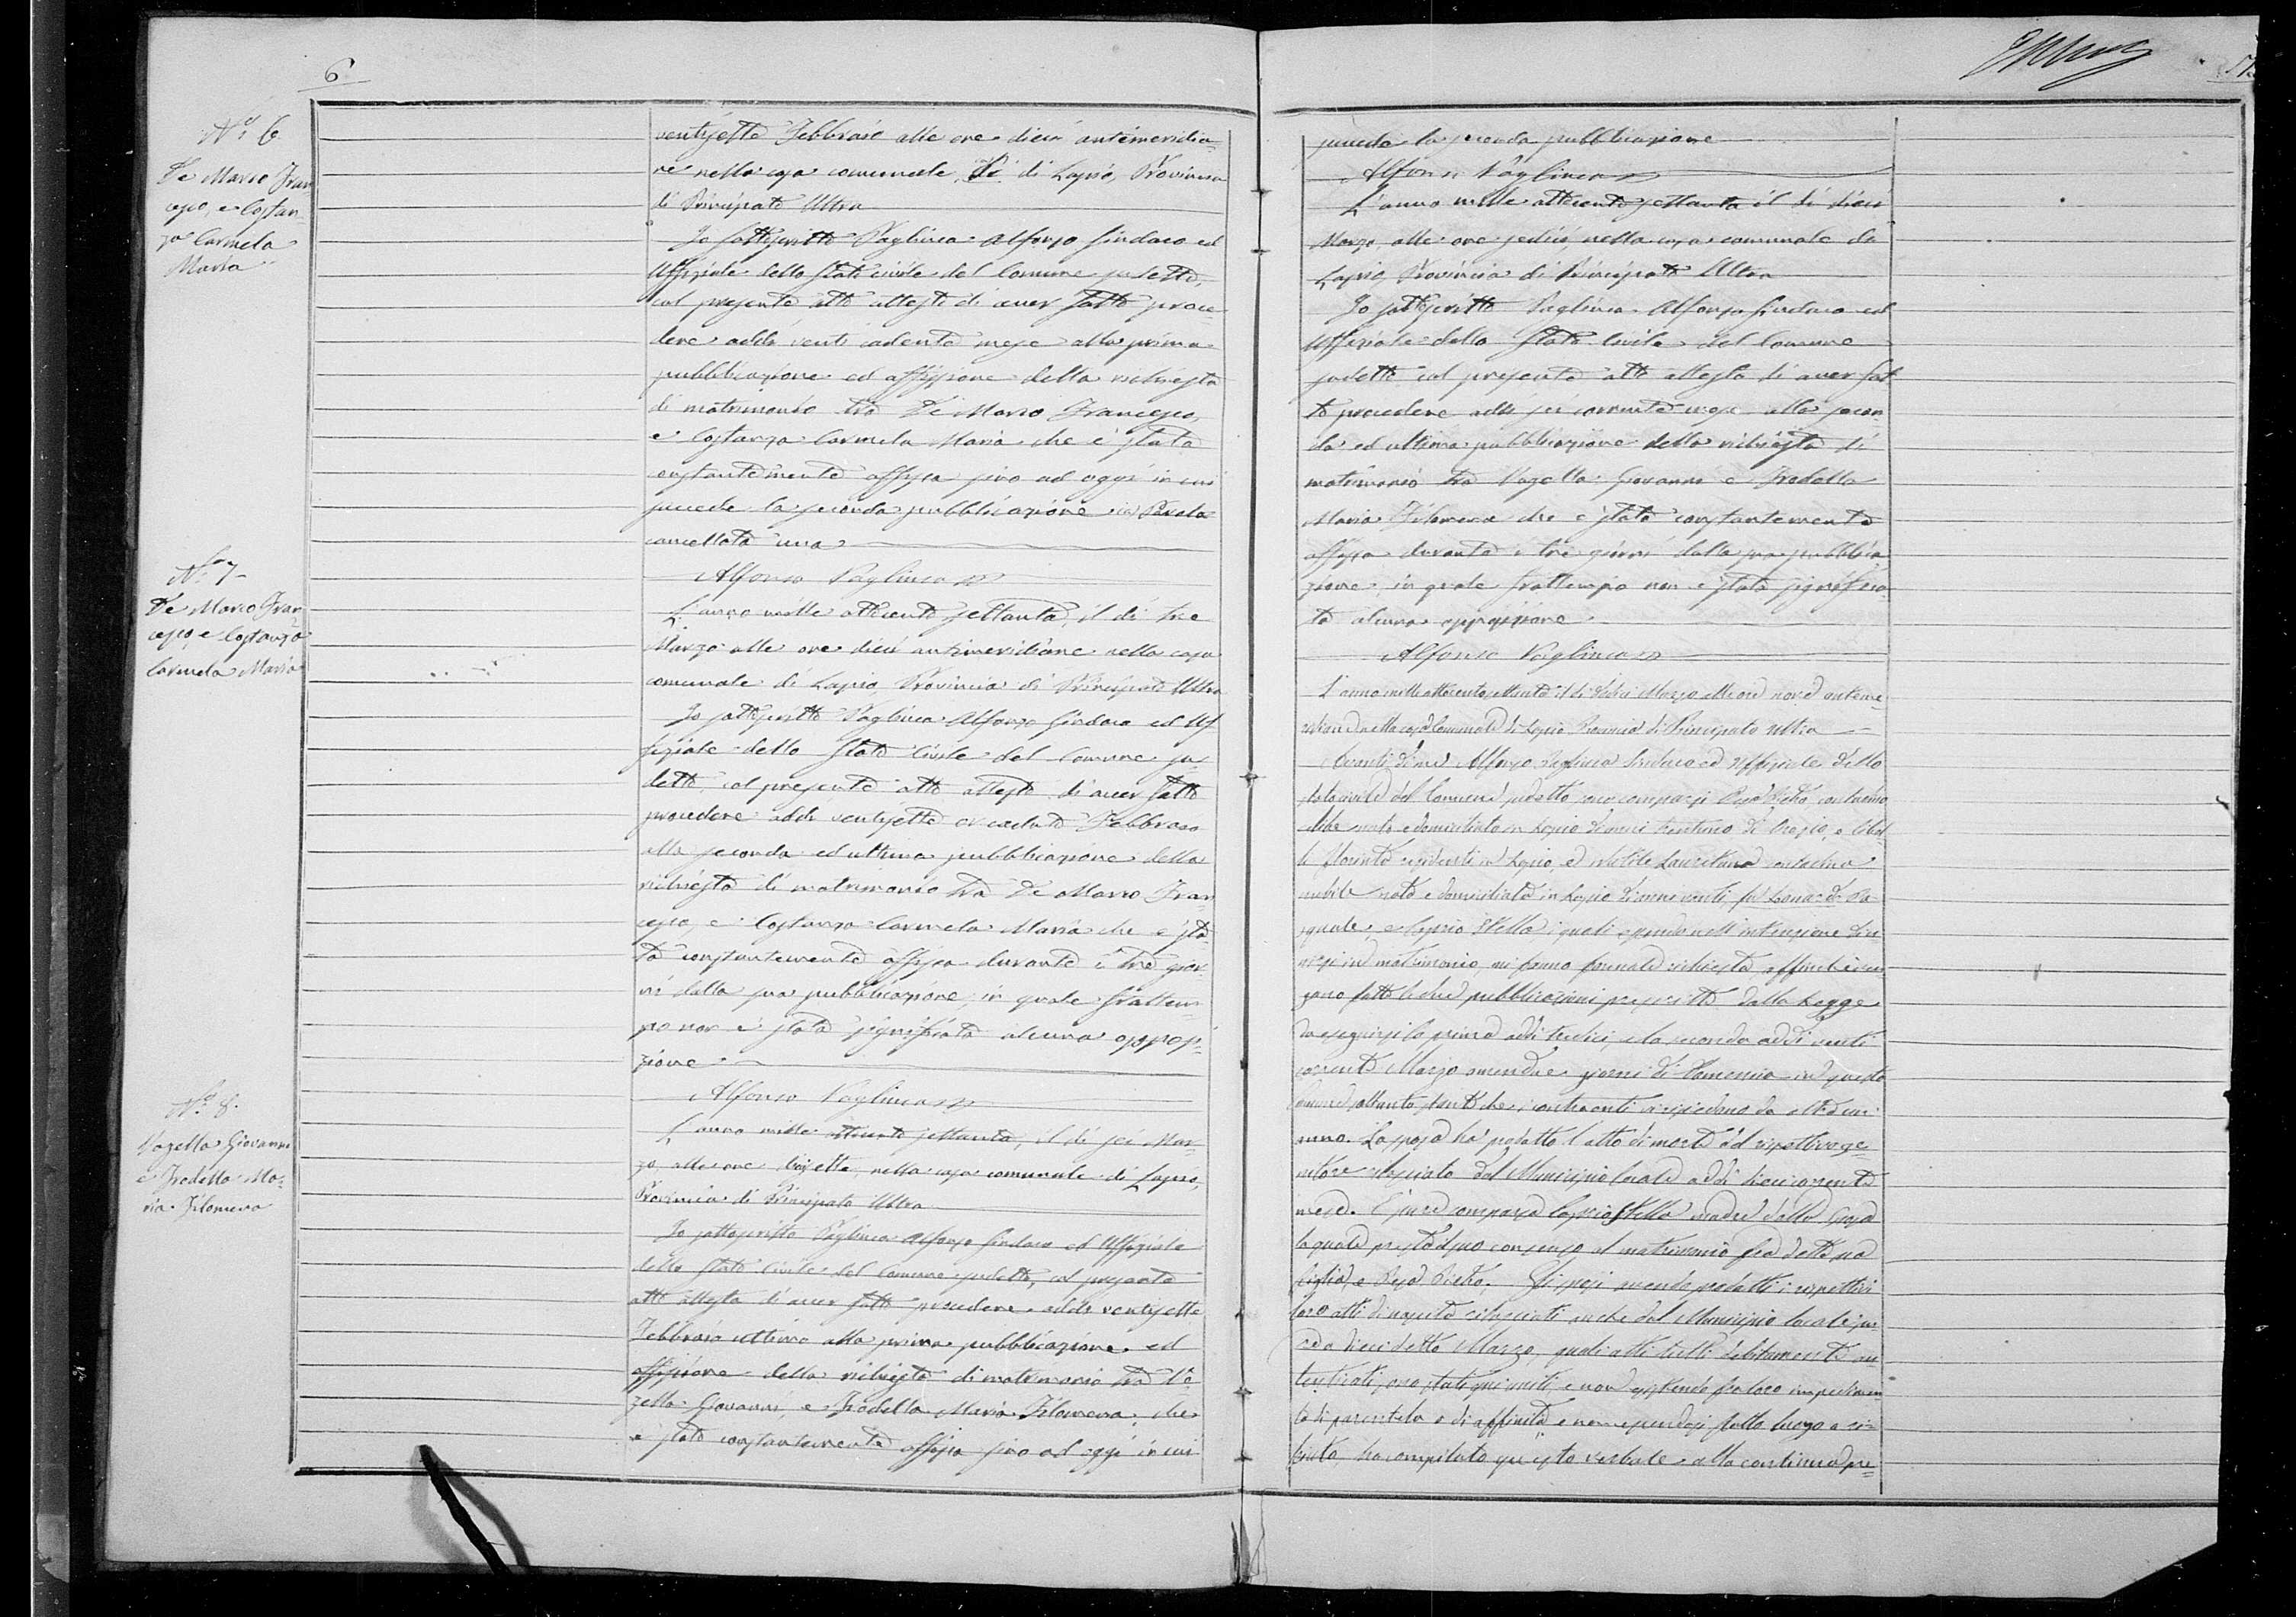 6
N.º 6
De Marco Fran
cesco, e Costan-
za Carmela
Maria
ventisette Febbraio alle ore dieci antimeridia-
ne nella casa comunale di Lapio, Provincia
di Principato Ultra
Io sottoscritto Pagliuca Alfonso Sindaco ed
Uffiziale dello Stato civile del Comune sudetto,
col presente atto attesto di aver fatto proce-
dere addì venti cadente mese alla prima
pubblicazione ed affissione della richiesta
di matrimonio tra De Marco Francesco,
e Costanza Carmela Maria che è stata
costantemente affissa sino ad oggi in cui
succede la seconda pubblicazione Parola
cancellata una
Alfonso Pagliuca
N.º 7
De Marco Fran
cesco e Costanza
Carmela Maria
L'anno mille ottocento settanta, il dì tre
Marzo alle ore dieci antimeridiane nella casa
comunale di Lapio, Provincia di Principato Ultra
Io sottoscritto Pagliuca Alfonso Sindaco ed Uf
fiziale dello Stato Civile del Comune su
detto, col presente atto attesto di aver fatto
procedere addì ventisette Febbraio
alla seconda ed ultima pubblicazione della
richiesta di matrimonio tra De Marco Fran
cesco, e Costanza Carmela Maria che è sta
ta costantemente affissa durante i tre gior-
ni dalla sua pubblicazione, in quale frattem-
po non è stata significata alcuna opposi-
zione
Alfonso Pagliuca
N.º 8.
Vozella Giovanni
e Iradella Ma-
ria Filomena
L'anno mille ottocento settanta, il dì sei Mar-
zo, alle ore nella casa comunale di Lapio,
Provincia di Principato Ultra
Io sottoscritto Pagliuca Alfonso Sindaco ed Uffiziale
dello Stato Civile del Comune sudetto, col presente
atto attesto d'aver fatto procedere addì ventisette
Febbraio ultimo alla prima pubblicazione ed
affissione della richiesta di matrimonio tra Vo
zella Giovanni, e Iradella Maria Filomena, che
è stata costantemente affissa sino ad oggi in cui
succede la seconda pubblicazione
Alfonso Pagliuca
L'anno mille ottocento settanta il dì dieci
Marzo, alle ore sedici, nella casa comunale di
Lapio, Provincia di Principato Ultra
Io sottoscritto Pagliuca Alfonso Sindaco ed
Uffiziale dello Stato Civile del Comune
sudetto col presente atto attesto di aver fat
to procedere addì sei corrente mese alla secon
da ed ultima pubblicazione della richiesta di
matrimonio tra Vozella Giovanni e Iradella
Maria Filomena che è stata costantemente
affissa durante i tre giorni dalla sua pubblica
zione, in quale frattempo non è stata significa
ta alcuna opposizione
Alfonso Pagliuca
L'anno mille ottocento settanta il dì dodici Marzo alle ore nove anteme-
ridiane nella casa Comunale di Lapio Provincia di Principato Ultra
Avanti di me Alfonso Pagliuca Sindaco ed Uffiziale dello
stato civile del Comune sudetto sono comparsi Pietro, contadino
celibe nato e domiciliato in Lapio di anni
residenti in Lapio, e contadina
nubile nata e domiciliata in Lapio di anni venti, fu Pa
squale, e Caprio Stella i quali essendo nell'intenzione di u
nirsi in matrimonio, mi fanno formale richiesta, affinché ven
gano fatte le due pubblicazioni prescritte dalla Legge
da eseguirsi la prima addì tredici, e la seconda addì venti
corrente Marzo amendue giorni di Domenica in questo
Comune soltanto stante che i contraenti risiedono da oltre un
anno. La sposa ha prodotto l'atto di morte del rispettivo ge-
nitore rilasciato dal Municipio locale addì dieci corrente
mese. È pure comparsa Caprio Stella madre della sposa
la quale presta il suo consenso al matrimonio fra detta sua
figlia, e Pietro. Gli sposi avendo prodotti i rispettivi
loro atti di nascita rilasciati anche dal Municipio locale
dieci detto Marzo, quali atti tutti debitamente au
tenticati, sono stati quì uniti, e non esistendo fra loro impedimen
to di parentela o di affinità, e non essendosi fatto luogo a ri-
fiuto, ho compilato questo verbale alla continua pre-